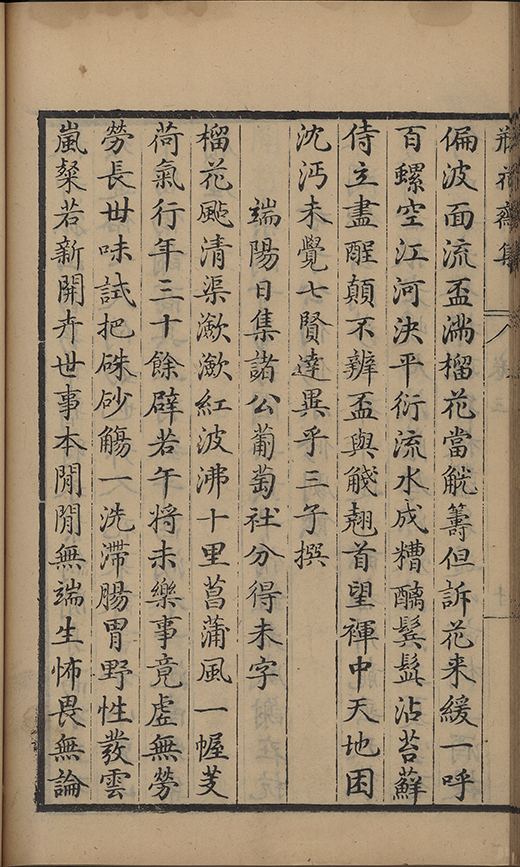 瓶花齋集
偏波面流盃滿榴花當觥籌但訴花来緩一呼
百螺空江河决平衍流水成糟醨鬓髭沾苔蘚
侍立盡酲顛不辨盃與觥翹首望褌中天地困
沈沔未覺七賢達異乎三子撰
端陽日集諸公葡萄社分得未字
榴花颭清渠漱漱紅波沸十里菖蒲風一幄芰
荷氣行年三十餘辟若午將未樂事竟虛無勞
勞長丗味試把硃砂觴一洗滯腸胃野性發雲
嵐粲若新開卉世事本閒閒無端生怖畏無論